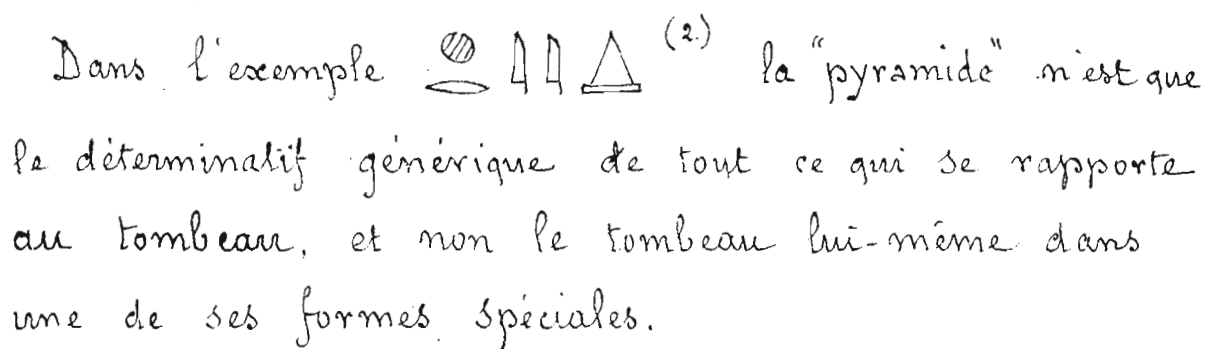 Dans l'exemple 𓐍𓂋𓇋𓇋𓉴 (2.) la "pyramide" n'est que
le déterminatif générique de tout ce qui se rapporte
au tombeau, et non le tombeau lui-même dans
une de ses formes spéciales.